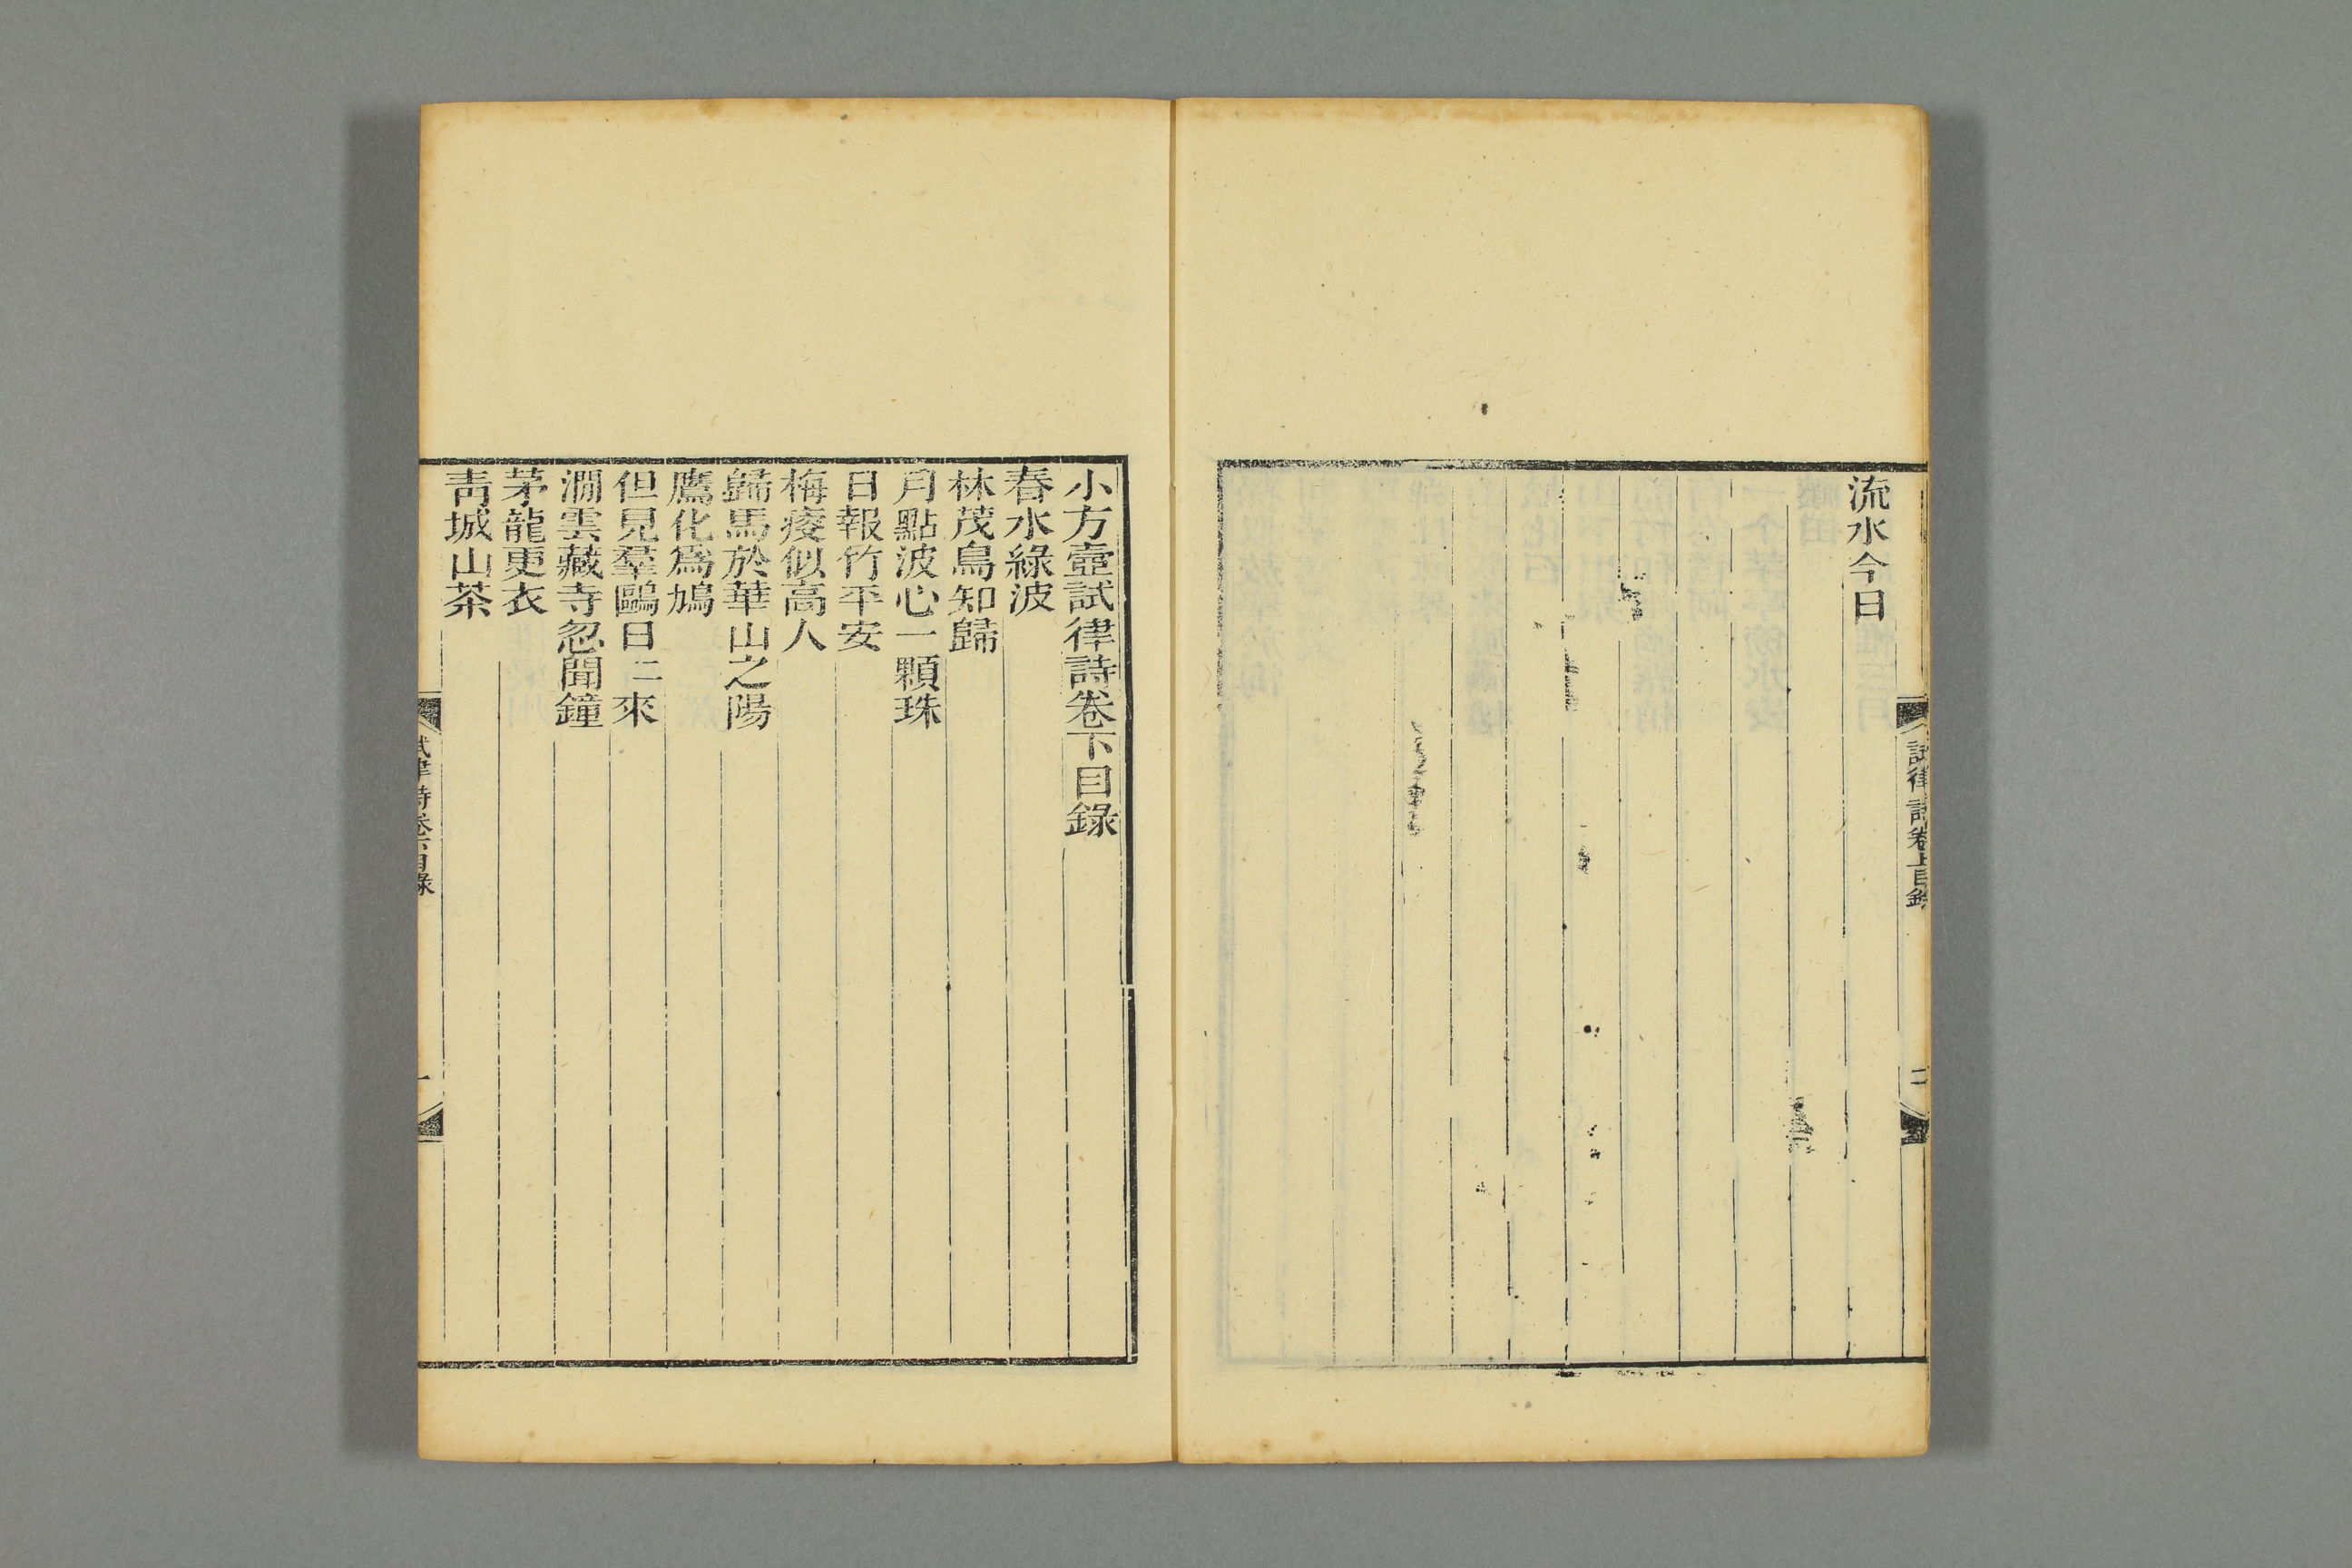 試律詩卷上目錄
二
流水今日
小方壺試律詩卷下目錄
春水綠波
林茂鳥知歸
月點波心一顆珠
日報竹平安
梅瘦似高人
歸馬於華山之陽
鷹化爲鳩
但見羣鷗日二來
澗雲藏寺忽聞鐘
茅龍更衣
靑城山茶
試律詩卷下目錄
一